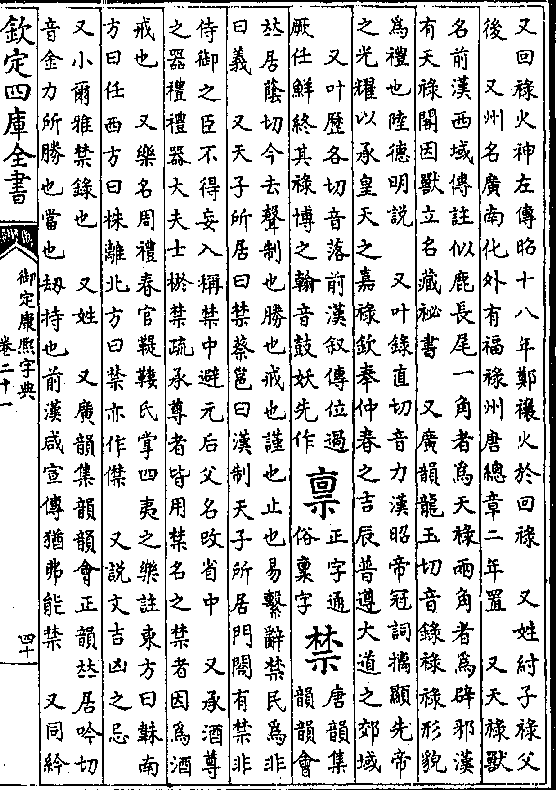 又回祿火神左傳昭十八年鄭禳火於回祿　又姓紂子祿父
後　又州名廣南化外有福祿州唐總章二年置　又天祿獸
名前漢西域傳註似鹿長尾一角者為天祿兩角者為辟邪漢
有天祿閣因獸立名藏祕書　又廣韻龍玉切音錄祿祿形貌
為禮也陸德明說　又叶錄直切音力漢昭帝冠詞摛顯先帝
之光耀以承皇天之嘉祿欽奉仲春之吉辰普遵大道之郊域
又叶歷各切音落前漢叙傳位過
厥任鮮終其祿博之翰音鼓妖先作
禀
正字通
俗稟字
禁
唐韻集
韻韻會
𠀤居蔭切今去聲制也勝也戒也謹也止也易繫辭禁民為非
曰義　又天子所居曰禁蔡邕曰漢制天子所居門閤有禁非
侍御之臣不得妄入稱禁中避元后父名改省中　又承酒尊
之器禮禮器大夫士棜禁疏承尊者皆用禁名之禁者因為酒
戒也　又樂名周禮春官鞮鞻氏掌四夷之樂註東方曰韎南
方曰任西方曰株離北方曰禁亦作僸　又說文吉凶之忌
又小爾雅禁錄也　又姓　又廣韻集韻韻會正韻𠀤居吟切
音金力所勝也當也刼持也前漢咸宣傳猶弗能禁　又同紟
欽定四庫全書
御定康熙字典
卷二十一
四十